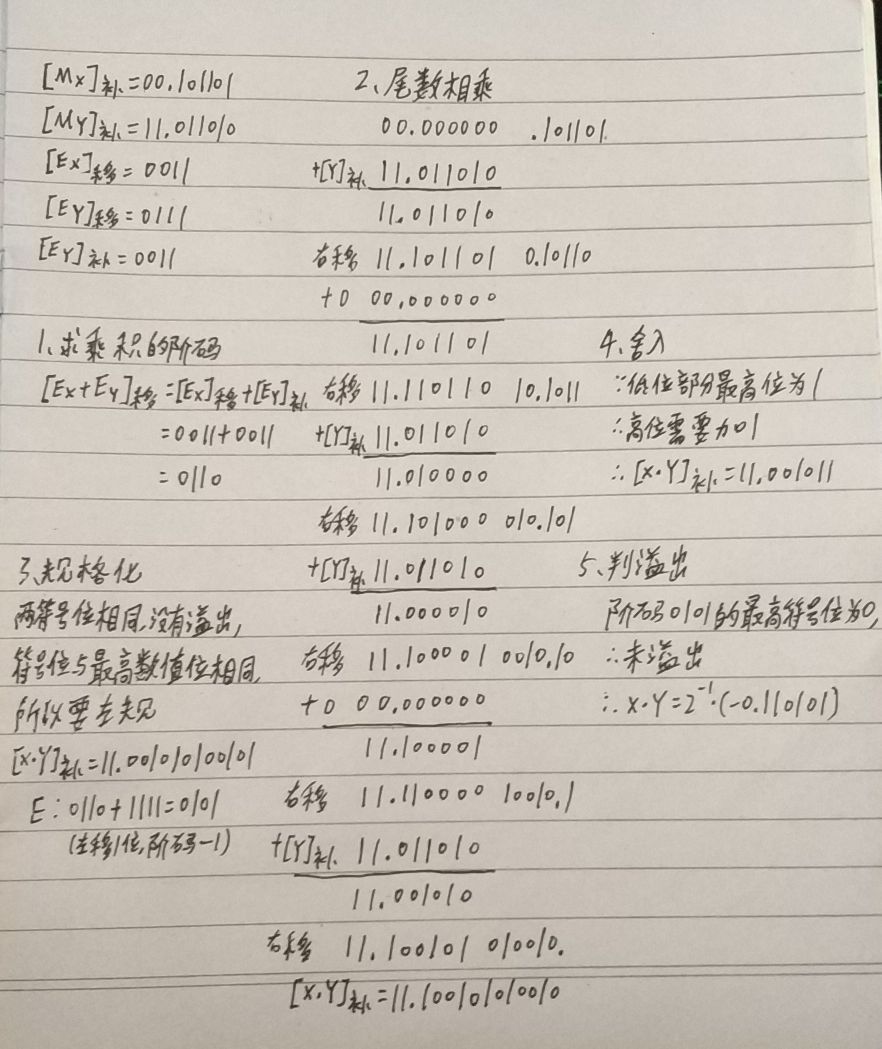 [Mx]补=00.101101
[My]补=11.011010
[Ex]移=0011
[Ey]移=0111
[Ey]补=0011
1、求乘积的阶码
[Ex+Ey]移=[Ex]移+[Ey]补
=0011+0011
=0110
2、尾数相乘
00.000000 .101101
+[Y]补 11.011010
11.011010
右移 11.101101 0.10110
+0 00.000000
11.101101
右移 11.110110 10.1011
+[Y]补 11.011010
11.010000
右移 11.101000 010.101
+[Y]补 11.011010
11.000010
右移 11.100001 0010.10
+0 00.000000
11.100001
右移 11.110000 10010.1
+[Y]补 11.011010
11.001010
右移 11.100101 010010.
[X·Y]补=11.100101010010
3、规格化
两符号位相同,没有溢出,
符号位与最高数值位相同,
所以要左规
[X·Y]补=11.001010100101
E:0110+1111=0101
(左移1位,阶码-1)
4、舍入
∵低位部分最高位为1
∴高位需要加1
∴[X·Y]补=11.001011
5、判溢出
阶码0101的最高符号位为0,
∴未溢出
∴X·Y=2⁻¹·(-0.110101)